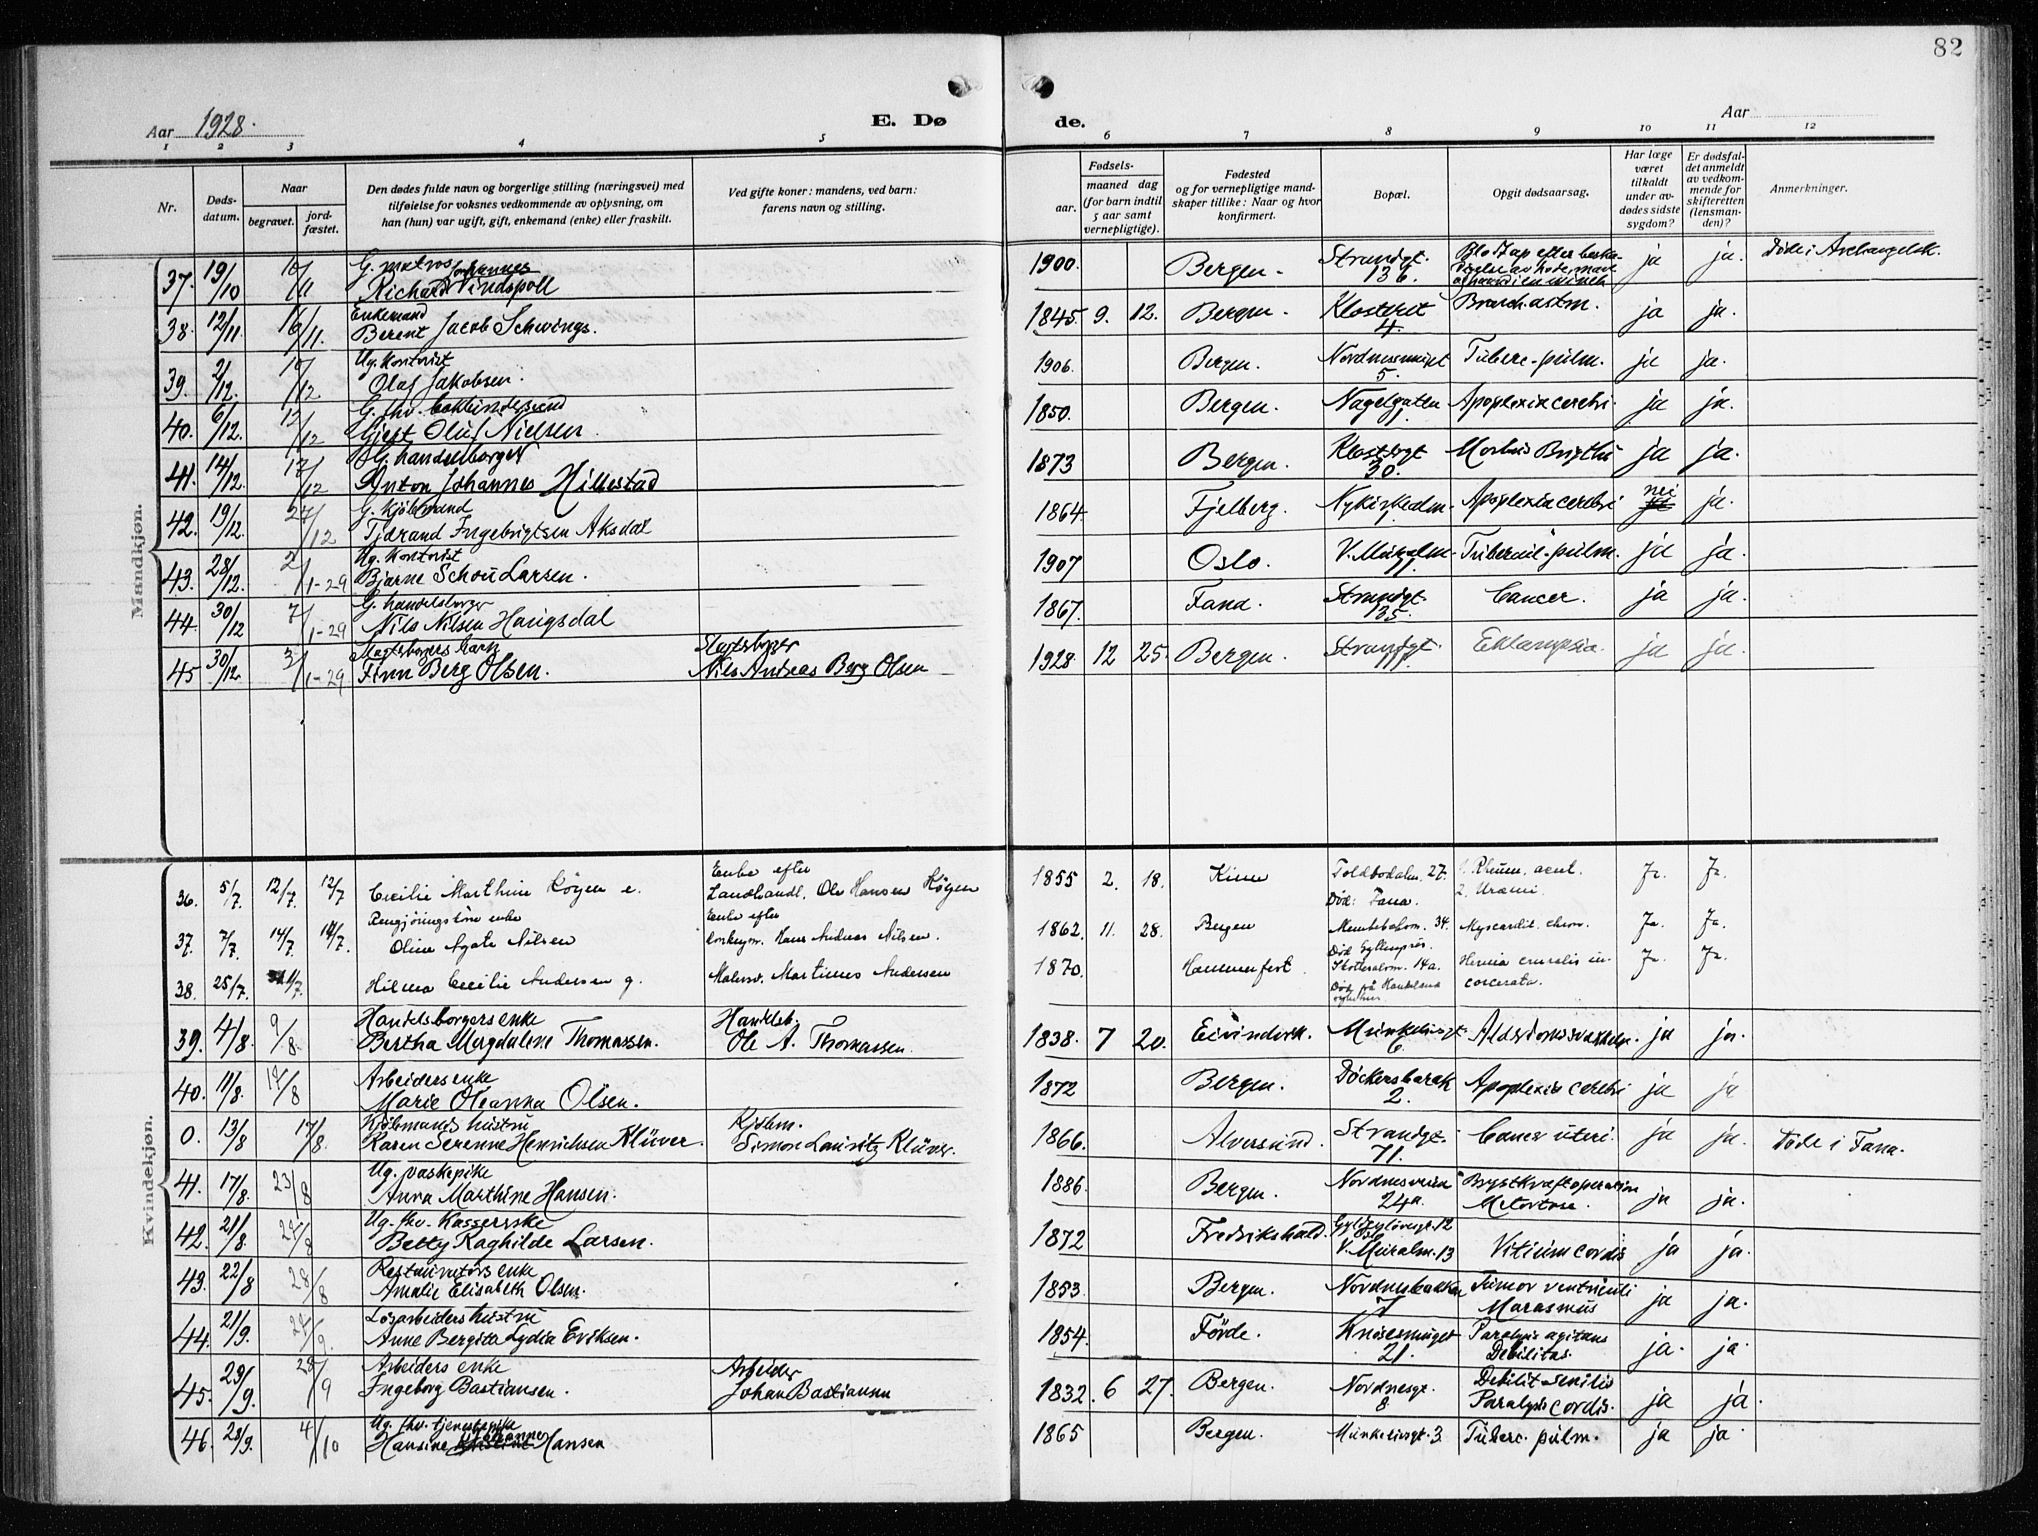 82
Aar 1928.
E. Dø de.
Aar
1 2 3 4 5 6 7 8 9 10 11 12
Nr.
Døds-
datum.
Naar
begravet.
jord-
fæstet.
Den dødes fulde navn og borgerlige stilling (næringsvei) med
tilføielse for voksnes vedkommende av oplysning, om
han (hun) var ugift, gift, enkemand (enke) eller fraskilt.
Ved gifte koner: mandens, ved barn:
farens navn og stilling.
Fødsels-
aar.
maaned dag
(for barn indtil
5 aar samt
vernepligtige).
Fødested
og for vernepligtige mand-
skaper tillike: Naar og hvor
konfirmert.
Bopæl.
Opgit dødsaarsag.
Har læge
været
tilkaldt
under av-
dødes sidste
sygdom?
Er dødsfal-
det anmeldt
av vedkom-
mende for
skifteretten
(lensman-
den)?
Anmerkninger.
Mandkjøn.
37. 19/10 10/11 G. matros Johannes
Richard Vindspoll 1900. Bergen. Strandgt. 136. ja ja. Døde i Archangelsk.
38. 12/11 16/11. Enkemand
Berent Jacob Schwings. 1845. 9. 12. Bergen. Klosteret 4. ja ja.
39. 2/12. 10/12 Ug. Kontorist
Olaf Jakobsen. 1906. Bergen. 5. Tuberc. pulm. ja ja.
40. 6/12. 12/12 G. fhv.
Gjert Oluf Nielsen. 1850. Bergen. Nagelgaten 1. Apoplexia cerebri ja ja.
41. 14/12. 17/12 G. handelsborger
Anton Johannes Hillestad 1873 Bergen. 30. Morbus Brigthii ja ja.
42. 19/12. 27/12 G. Kjøbmand
Tjerand Ingebrigtsen Aksdal 1864. Fjelberg. Nykirkealm. 1. Apoplexia cerebri nei ja.
43. 28/12. 2/1-29 Ug. Kontorist
Bjarne Schou Larsen. 1907 Oslo. V. Muralm. Tubercul. pulm. ja ja.
44. 30/12 7/1-29 G. handelsborger
Nils Nilsen Haugsdal 1867. Fana. Strandgt. 135. Cancer. ja ja.
45 30/12. 3/1-29 barn
Finn Berg Olsen. Nils Andreas Berg Olsen 1928. 12 25. Bergen. Strandgt. Eklampsia. ja ja.
Kvindekjøn.
36. 5/7. 12/7. 12/7 Cecilie Marthine Høgen e. Enke efter
Landhandl. Ole Hansen Høgen 1855 2. 18. Kinn Toldbodalm. 27.
Død: Fana. 1. Rheum. acut.
2. Uræmi. Ja. Ja.
37. 7/7. 14/7. 14/7. Rengjøringskone enke
Oline Agate Nilsen Enke efter
Hans Andreas Nilsen. 1862. 11. 28. Bergen 34. Myocardit. chron. Ja. Ja.
38. 25/7. Hilma Cecilie Andersen g. Malersv. Martinus Andersen 1870. Hammerfest. 14a. Hernia cruralis in-
carcerata. Ja. Ja.
39. 4/8. 9/8. Handelsborgers enke
Bertha Magdalene Thomassen. Handelsb.
Ole A. Thomassen. 1838. 7 20. Eivindvik. Munkelivsgt. 6. ja ja.
40. 11/8. 14/8 Arbeiders enke
Marie Oleanna Olsen. 1872 Bergen. Døckersbarak 2. Apoplexia cerebri ja ja
0. 13/8 17/8. Kjøbmands hustru
Karen Serenne Henrichsen Klüver. Kjøbm.
Simon Lauritz Klüver. 1866. Alversund. Strandgt. 71. Cancer uteri. ja ja. Døde i Fana.
41. 17/8. 23/8 Ug. vaskepike
Anna Marthine Hansen. 1886. Bergen. Nordnesveien 24a. Brystkræftoperation ja ja.
42. 21/8. 24/8 Ug. fhv. Kassererske
Betty Raghilde Larsen. 1872 Fredrikshald. V. Muralm. 13 Vitium cordis ja ja.
43. 22/8 28/8 Restauratørs enke
Amalie Elisabeth Olsen. 1853. Bergen. Nordnesbakken 7 Tumor ventriculi
Marasmus ja ja.
44. 21/9. Løsarbeiders hustru
Anne Bergitta Lydia Eriksen. 1854. Førde. Knøsesmuget 21. Paralysis agitans
Debilitas. ja. ja.
45. 23/9. 28/9 Arbeiders enke
Ingeborg Bastiansen. Arbeider
Johan Bastiansen 1832. 6 27. Bergen. Nordnesgt. 8 Debilit. senilis
Paralysis cordis. ja ja.
46. 28/9. 4/10 Ug. fhv. tjenestepike
Hansine Johanne Hansen 1865 Bergen. Munkelivsgt. 3. Tuberc. pulm. ja ja.